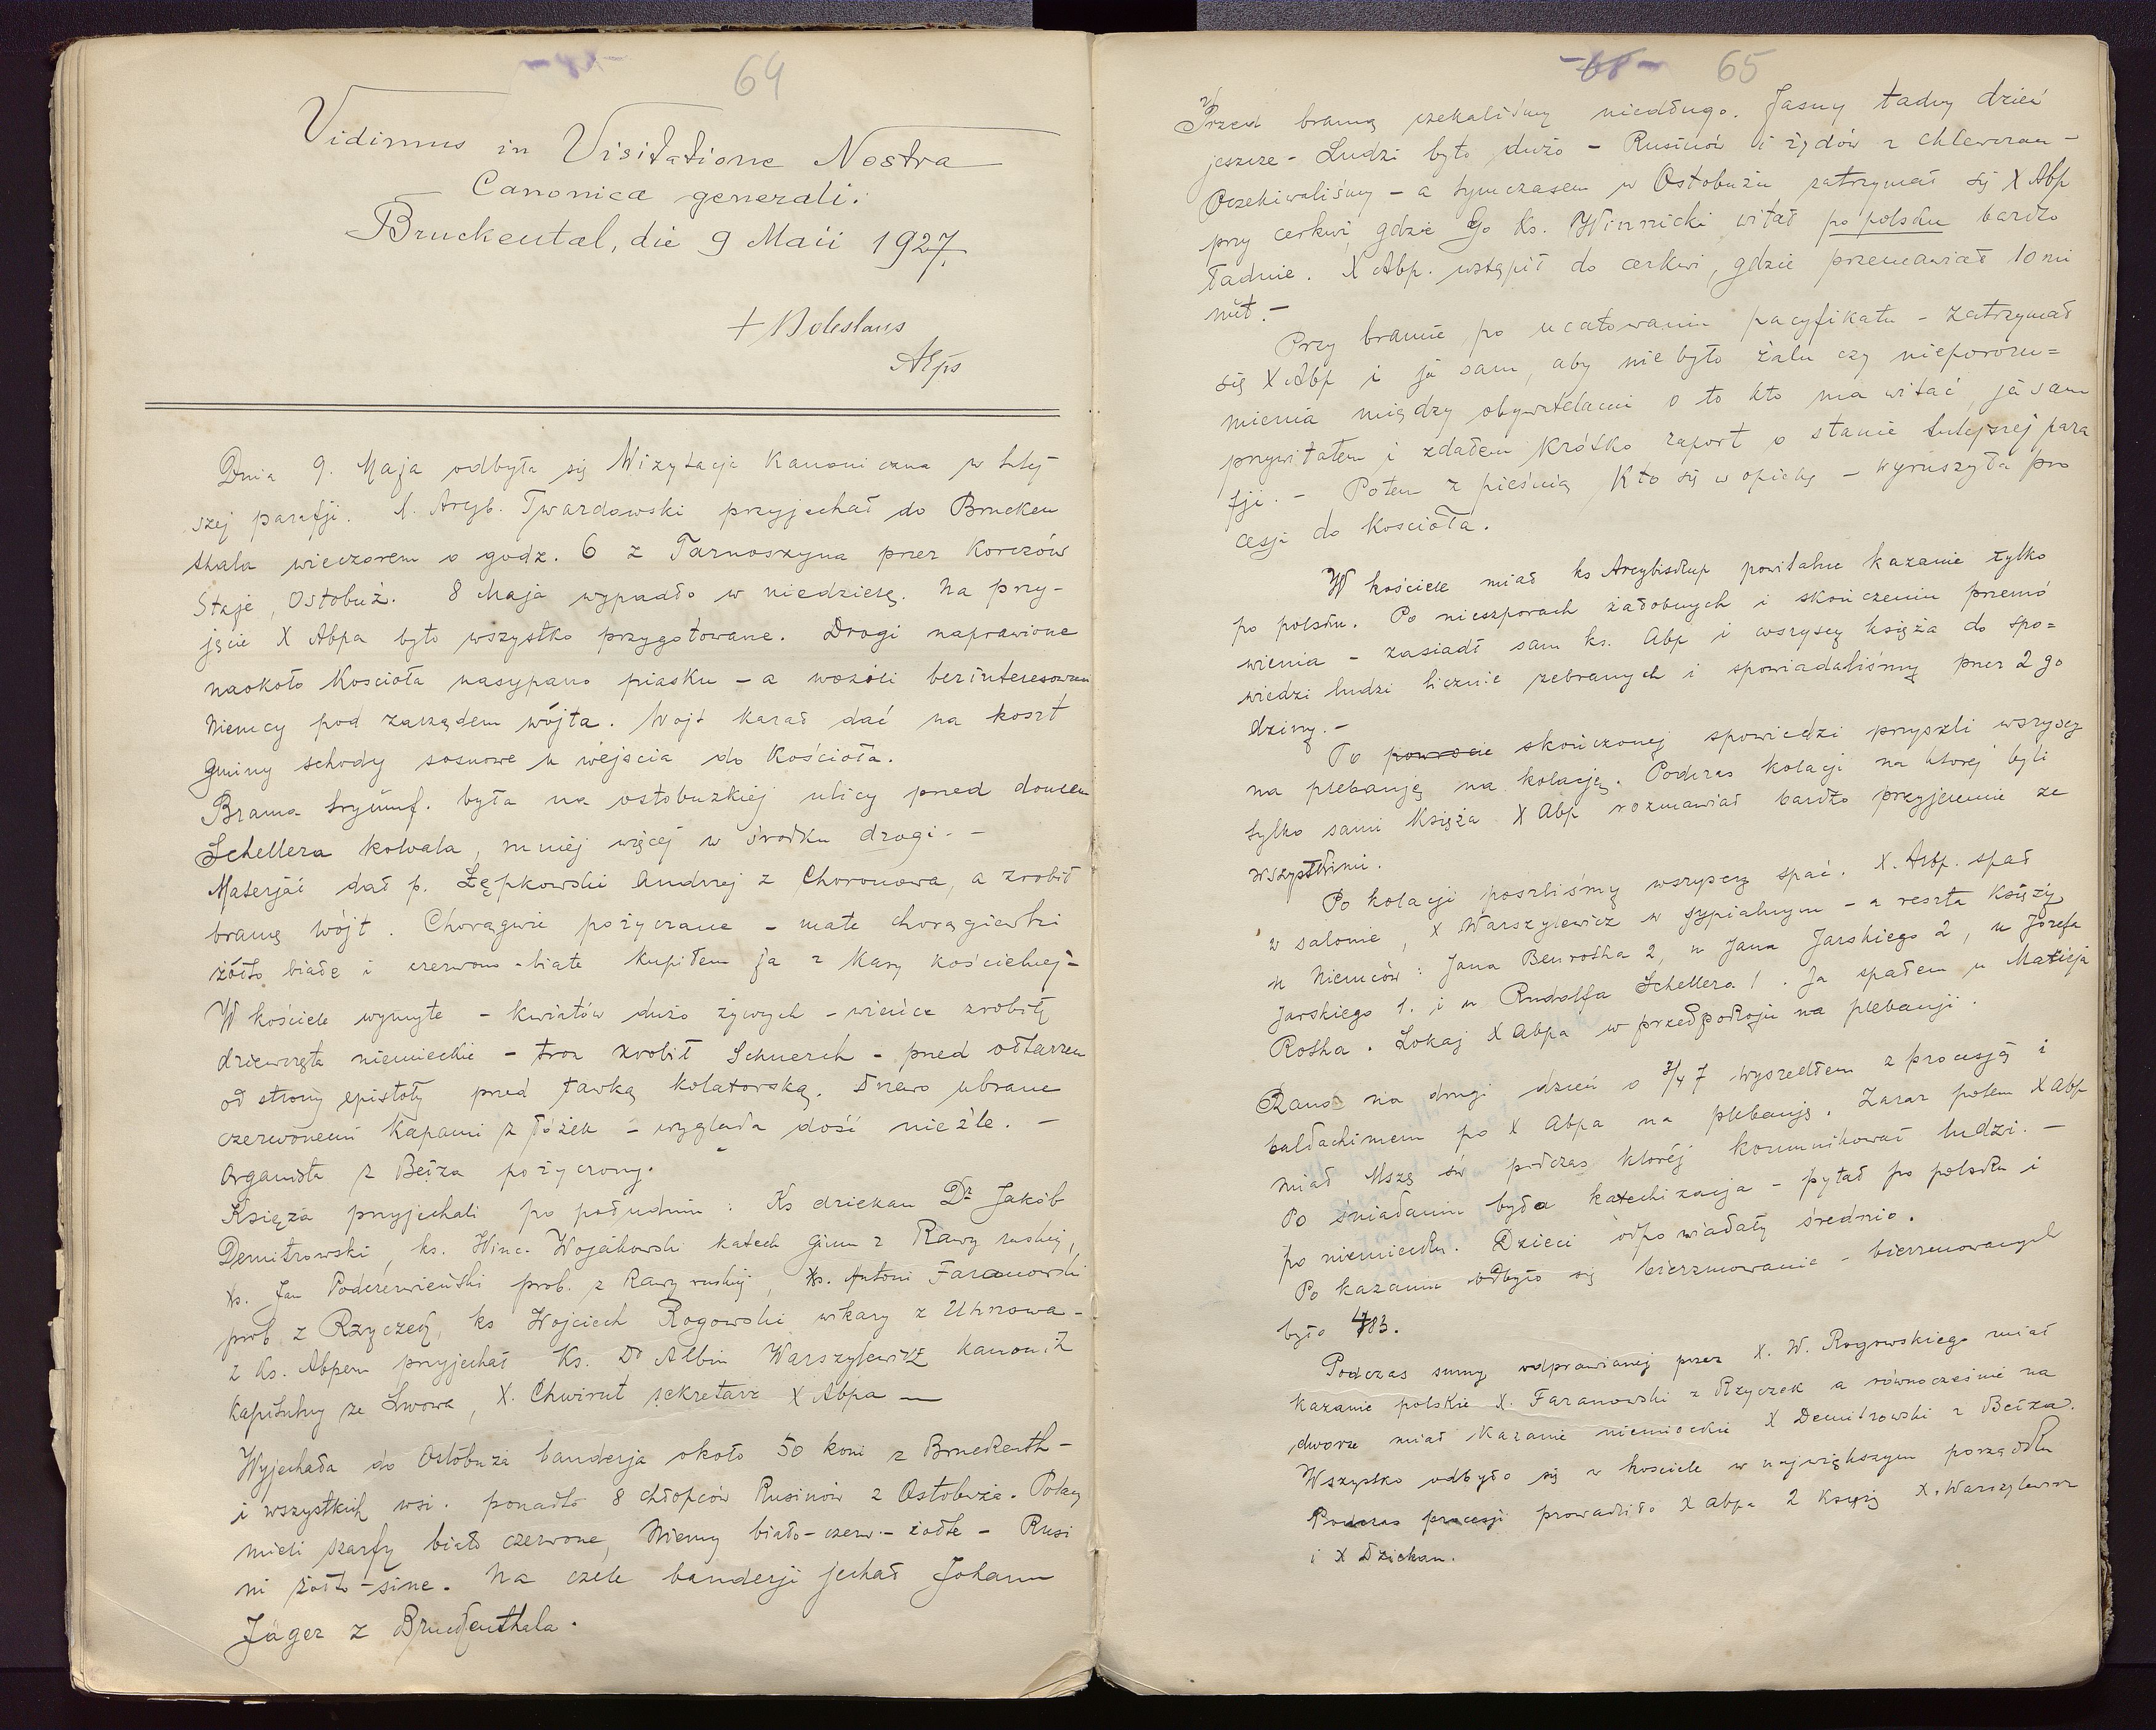 64
Vidimus in Visitatione Nostra
Canonica generali:
Bruckental, die 9 Maii 1927.
+ Boleslaus
Aeps
Dnia 9. Maja odbyła się Wizytacja Kanoniczna w tutej
szej parafji. Arcyb. Twardowski przyjechał do Brucken
thala wieczorem o godz. 6 z Tarnoszyna przez Korczów
Staje, Ostobuż. 8 Maja wypadło w niedzielę. Na przy-
jęcie X Abpa było wszystko przygotowane. Drogi naprawione
naokoło Kościoła nasypano piasku - a wozili berinteresown
Niemcy pod zarządem wójta. Wójt kazał dać na koszt
gminy schody sosnowe u wejścia do Kościoła.
Brama tryumf. była na ostobuzkiej ulicy przed domem
Schellera kowala, mniej więcej w środku drogi. -
Materjał dał p. Łępkowski Andrzej z Choronowa, a zrobił
bramę wójt. Chorągwie pożyczane - małe chorągiewki
żółto białe i czerwono-białe kupiłem ja z Kasy kościelnej -
W kościele wymyte - kwiatów dużo żywych - wieńce zrobiły
dziewczęta niemieckie - tron zrobił Schnerch - przed ołtarzem
od strony epistoły przed ławką kolatorską. Drzewo ubrane
czerwonemi kapami z łóżek - wygląda dość nieźle. -
Organista z Bełza pożyczony.
Księża przyjechali po południu: Ks dziekan Dr Jakób
Demitrowski, ks. Winc. Wojakowski katech gimn z Rawy ruskiej,
ks. Jan Poderewieński prob. z Rawy ruskiej, ks. Antoni Faranowski
prob. z Rzyczek, ks Wojciech Rogowski wikary z Uhnowa -
z Ks. Abpem przyjechał Ks. Dr Albin Warszylewicz kanonik
Kapitulny ze Lwowa, X. Chwirut sekretarz X Abpa —
Wyjechała do Ostobuża banderja około 50 koni z Bruckenth -
i wszystkich wsi. ponadto 8 chłopców Rusinów z Ostobuża. Polacy
mieli szarfy biało czerwone, Niemcy biało-czerw.- żółte - Rusi
ni żółto-sine. Na czele banderji jechał Johann
Jäger z Bruckenthala.
65
Przed bramą czekaliśmy niedługo. Jasny ładny dzień
jeszcze - Ludzi było dużo - Rusinów i żydów z Chlewczan -
Oczekiwaliśmy - a tymczasem w Ostobużu zatrzymał się X Abp
przy cerkwi, gdzie Go Ks. Winnicki witał po polsku bardzo
ładnie. X Abp. wstąpił do cerkwi, gdzie przemawiał 10 mi
nut. -
Przy bramie po ucałowaniu pacyfikału - zatrzymał
się X Abp i ja sam, aby nie było żalu czy nieporozu=
mienia między obywatelami o to kto ma witać, ja sam
przywitałem i zdałem krótko raport o stanie tutejszej para
fji. - Potem z pieśnią Kto się w opiekę - wyruszyła pro
cesja do Kościoła.
W kościele miał ks Arcybiskup powitalne kazanie tylko
po polsku. Po nieszporach żałobnych i skończeniu przemó
wienia - zasiadł sam ks. Abp i wszyscy księża do spo=
wiedzi ludzi licznie zebranych i spowiadaliśmy przez 2 go
dziny. -
Po powrocie skończonej spowiedzi przyszli wszyscy
na plebanję na kolację. Podczas kolacji na której byli
tylko sami Księża X Abp rozmawiał bardzo przyjemnie ze
wszystkimi.
Po kolacji poszliśmy wszyscy spać. X. Arbp. spał
w salonie, X Warszylewicz w sypialnym - a reszta Księży
u Niemców: Jana Benrotha 2, u Jana Jarskiego 2, u Józefa
Jarskiego 1. i u Rudolfa Schellera 1. Ja spałem u Macieja
Rotha. Lokaj X Abpa w przedpokoju na plebanji.
Rano na drugi dzień o 3/4 7 wyszedłem z procesją i
baldachimem po X Abpa na plebanję. Zaraz potem X Abp
miał Mszę św podczas której komunikował ludzi. -
Po śniadaniu była katechizacja - pytał po polsku i
po niemiecku. Dzieci odpowiadały średnio.
Po kazaniu odbyło się bierzmowanie - bierzmowanych
było 783.
Podczas sumy odprawianej przez X. W. Rogowskiego miał
kazanie polskie X. Faranowski z Rzyczek a równocześnie na
dworze miał kazanie niemieckie X Demitrowski z Bełza.
Wszystko odbyło się w kościele w największym porządku
Podczas procesji prowadziło X Abpa 2 Księży X. Warszylewicz
i X Dziekan.